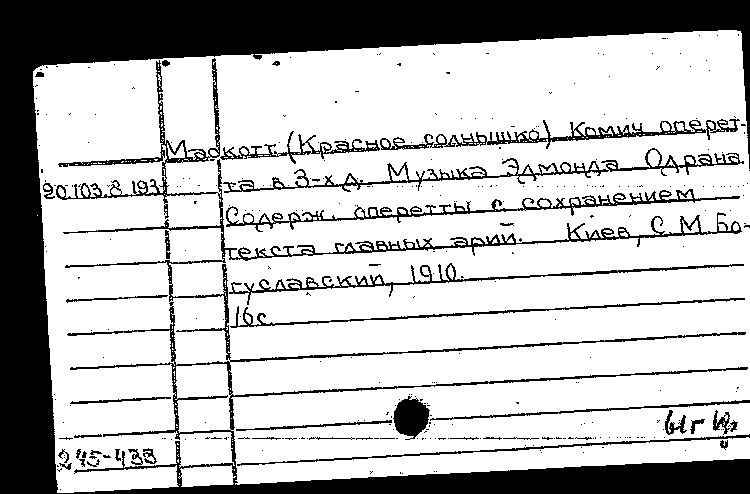 Маскотт. (Красное солнышко) Комич оперет-
20.103.8.193 та в 3-х д. Музыка Эдмонда Одрана
Содерж. оперетты с сохранением
текста главных арий. Киев, С. М. Бо-
гуславский, 1910.
16 с.
61г
245-433